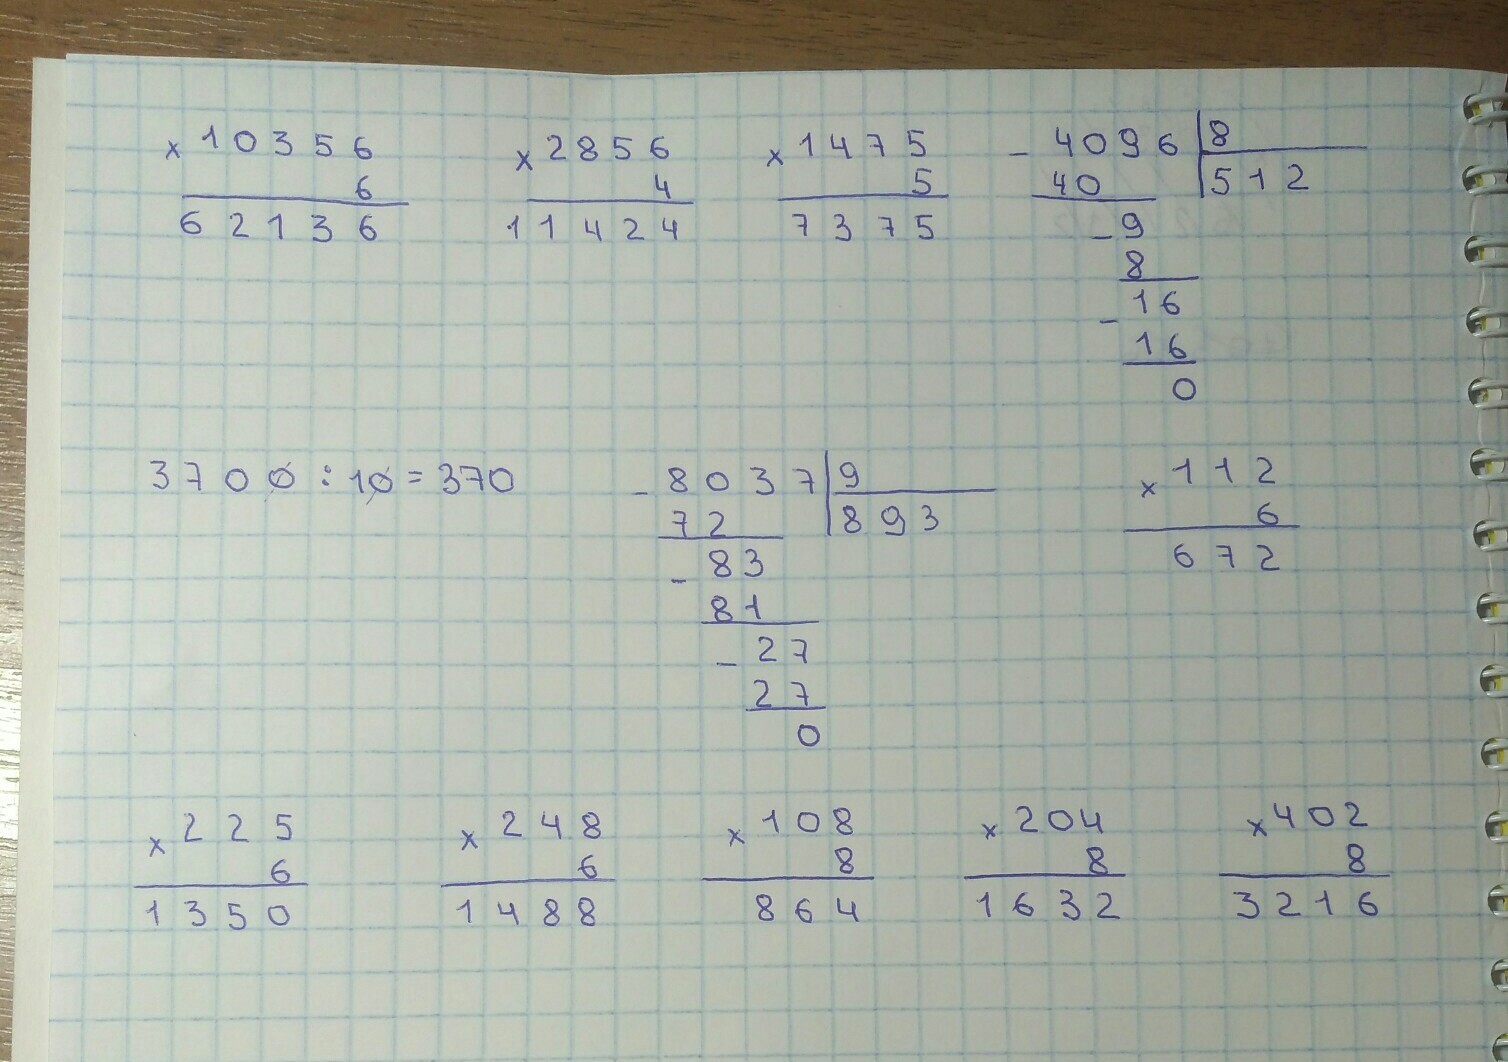 × 10356 × 2856 × 1475 - 4096 | 8
6 4 5 40 | 512
62136 11424 7375 - 9
8
- 16
16
0
3700 : 10 = 370 - 8037 | 9 × 112
72 | 893 6
- 83 672
81
- 27
27
0
× 225 × 248 × 108 × 204 × 402
6 6 8 8 8
1350 1488 864 1632 3216